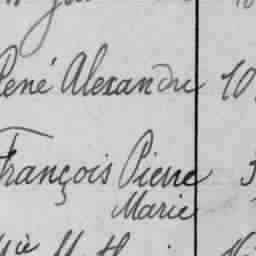 René Alexandre 10
François Pierre
Marie